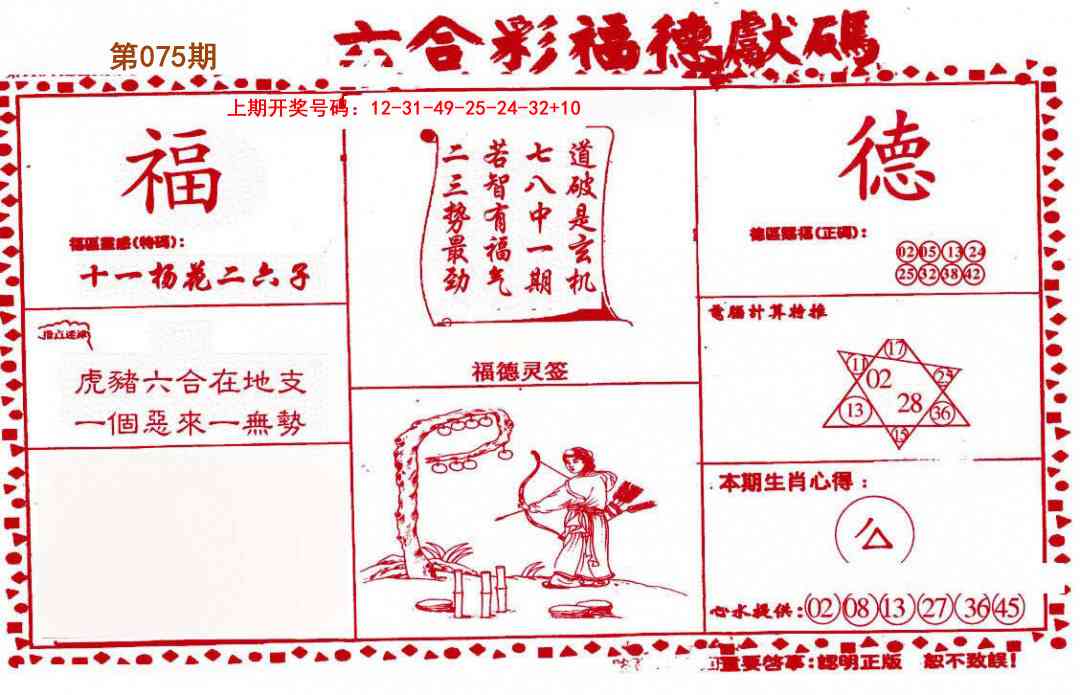 第075期
六合彩福德獻碼
上期开奖号码：12-31-49-25-24-32+10
福
福區靈感(特碼)：
十一杨花二六子
道破是玄机
七八中一期
若智有福气
二三势最劲
福德灵签
德
(正碼)：
02 05 13 24
25 32 38 42
指点迷津
虎豬六合在地支
一個惡來一無勢
電腦計算特推
17
11 02 25
13 28 36
15
本期生肖心得：
心水提供：02 08 13 27 36 45
重要啓事：認明正版 恕不致誤！